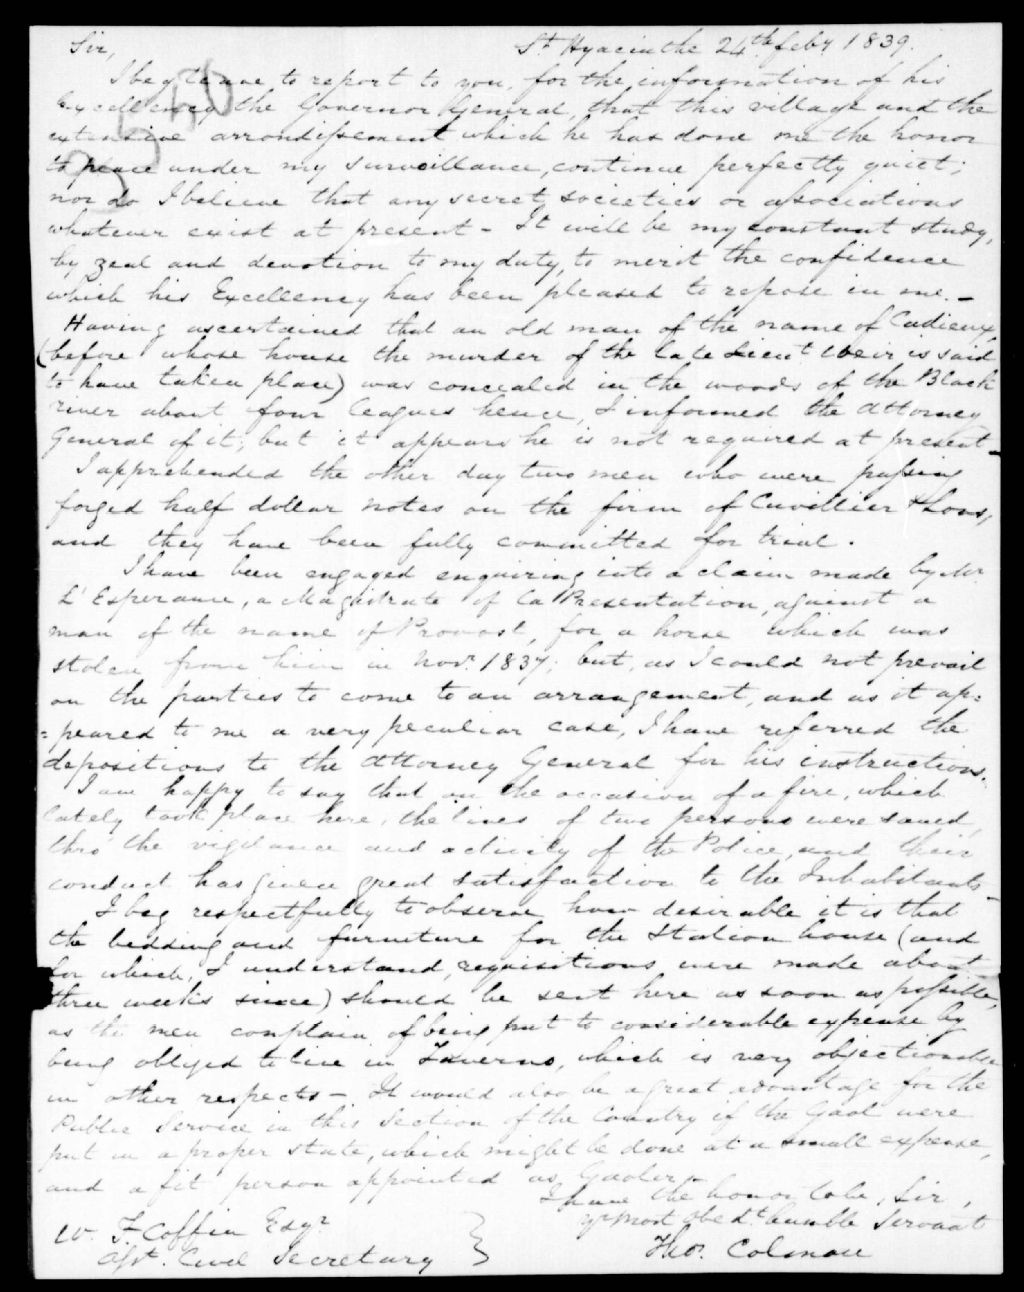 St Hyacinthe 24th feby 1839.
Sir,
I beg leave to report to you, for the information of his
Excellency the Governor General, that this village and the
extensive arrondissement which he has done me the honor
to place under my surveillance, continue perfectly quiet;
nor do I believe that any secret societies or associations
whatever exist at present - It will be my constant study,
by zeal and devotion to my duty, to merit the confidence
which his Excellency has been pleased to repose in me. -
Having ascertained that an old man of the name of Cadieux,
(before whose house the murder of the late Lieut Weir is said
to have taken place) was concealed in the woods of the Black
river about four leagues hence, I informed the Attorney
General of it; but it appears he is not required at present -
I apprehended the other day two men who were passing
forged half dollar notes on the firm of Cuvillier & Sons,
and they have been fully committed for trial.
I have been engaged enquiring into a claim made by Mr
L'Esperance, a Magistrate of La Presentation, against a
man of the name of Provost, for a horse which was
stolen from him in Novr 1837; but, as I could not prevail
on the parties to come to an arrangement, and as it ap=
=peared to me a very peculiar case, I have referred the
depositions to the Attorney General for his instructions.
I am happy to say that on the occasion of a fire, which
lately took place here, the lives of two persons were saved,
thro' the vigilance and activity of the Police, and their
conduct has given great satisfaction to the Inhabitants -
I beg respectfully to observe how desirable it is that
the bedding and furniture for the Station house (and
for which, I understand, requisitions were made about
three weeks since) should be sent here as soon as possible,
as the men complain of being put to considerable expense by
being obliged to live in Taverns, which is very objectionable
in other respects - It would also be a great advantage for the
Public Service in this Section of the Country if the Gaol were
put in a proper state, which might be done at a small expense,
and a fit person appointed as Gaoler -
I have the honor to be, Sir,
yr most obedt humble Servant
Thos. Colman
W. F Coffin Esqr
Asst. Civil Secretary